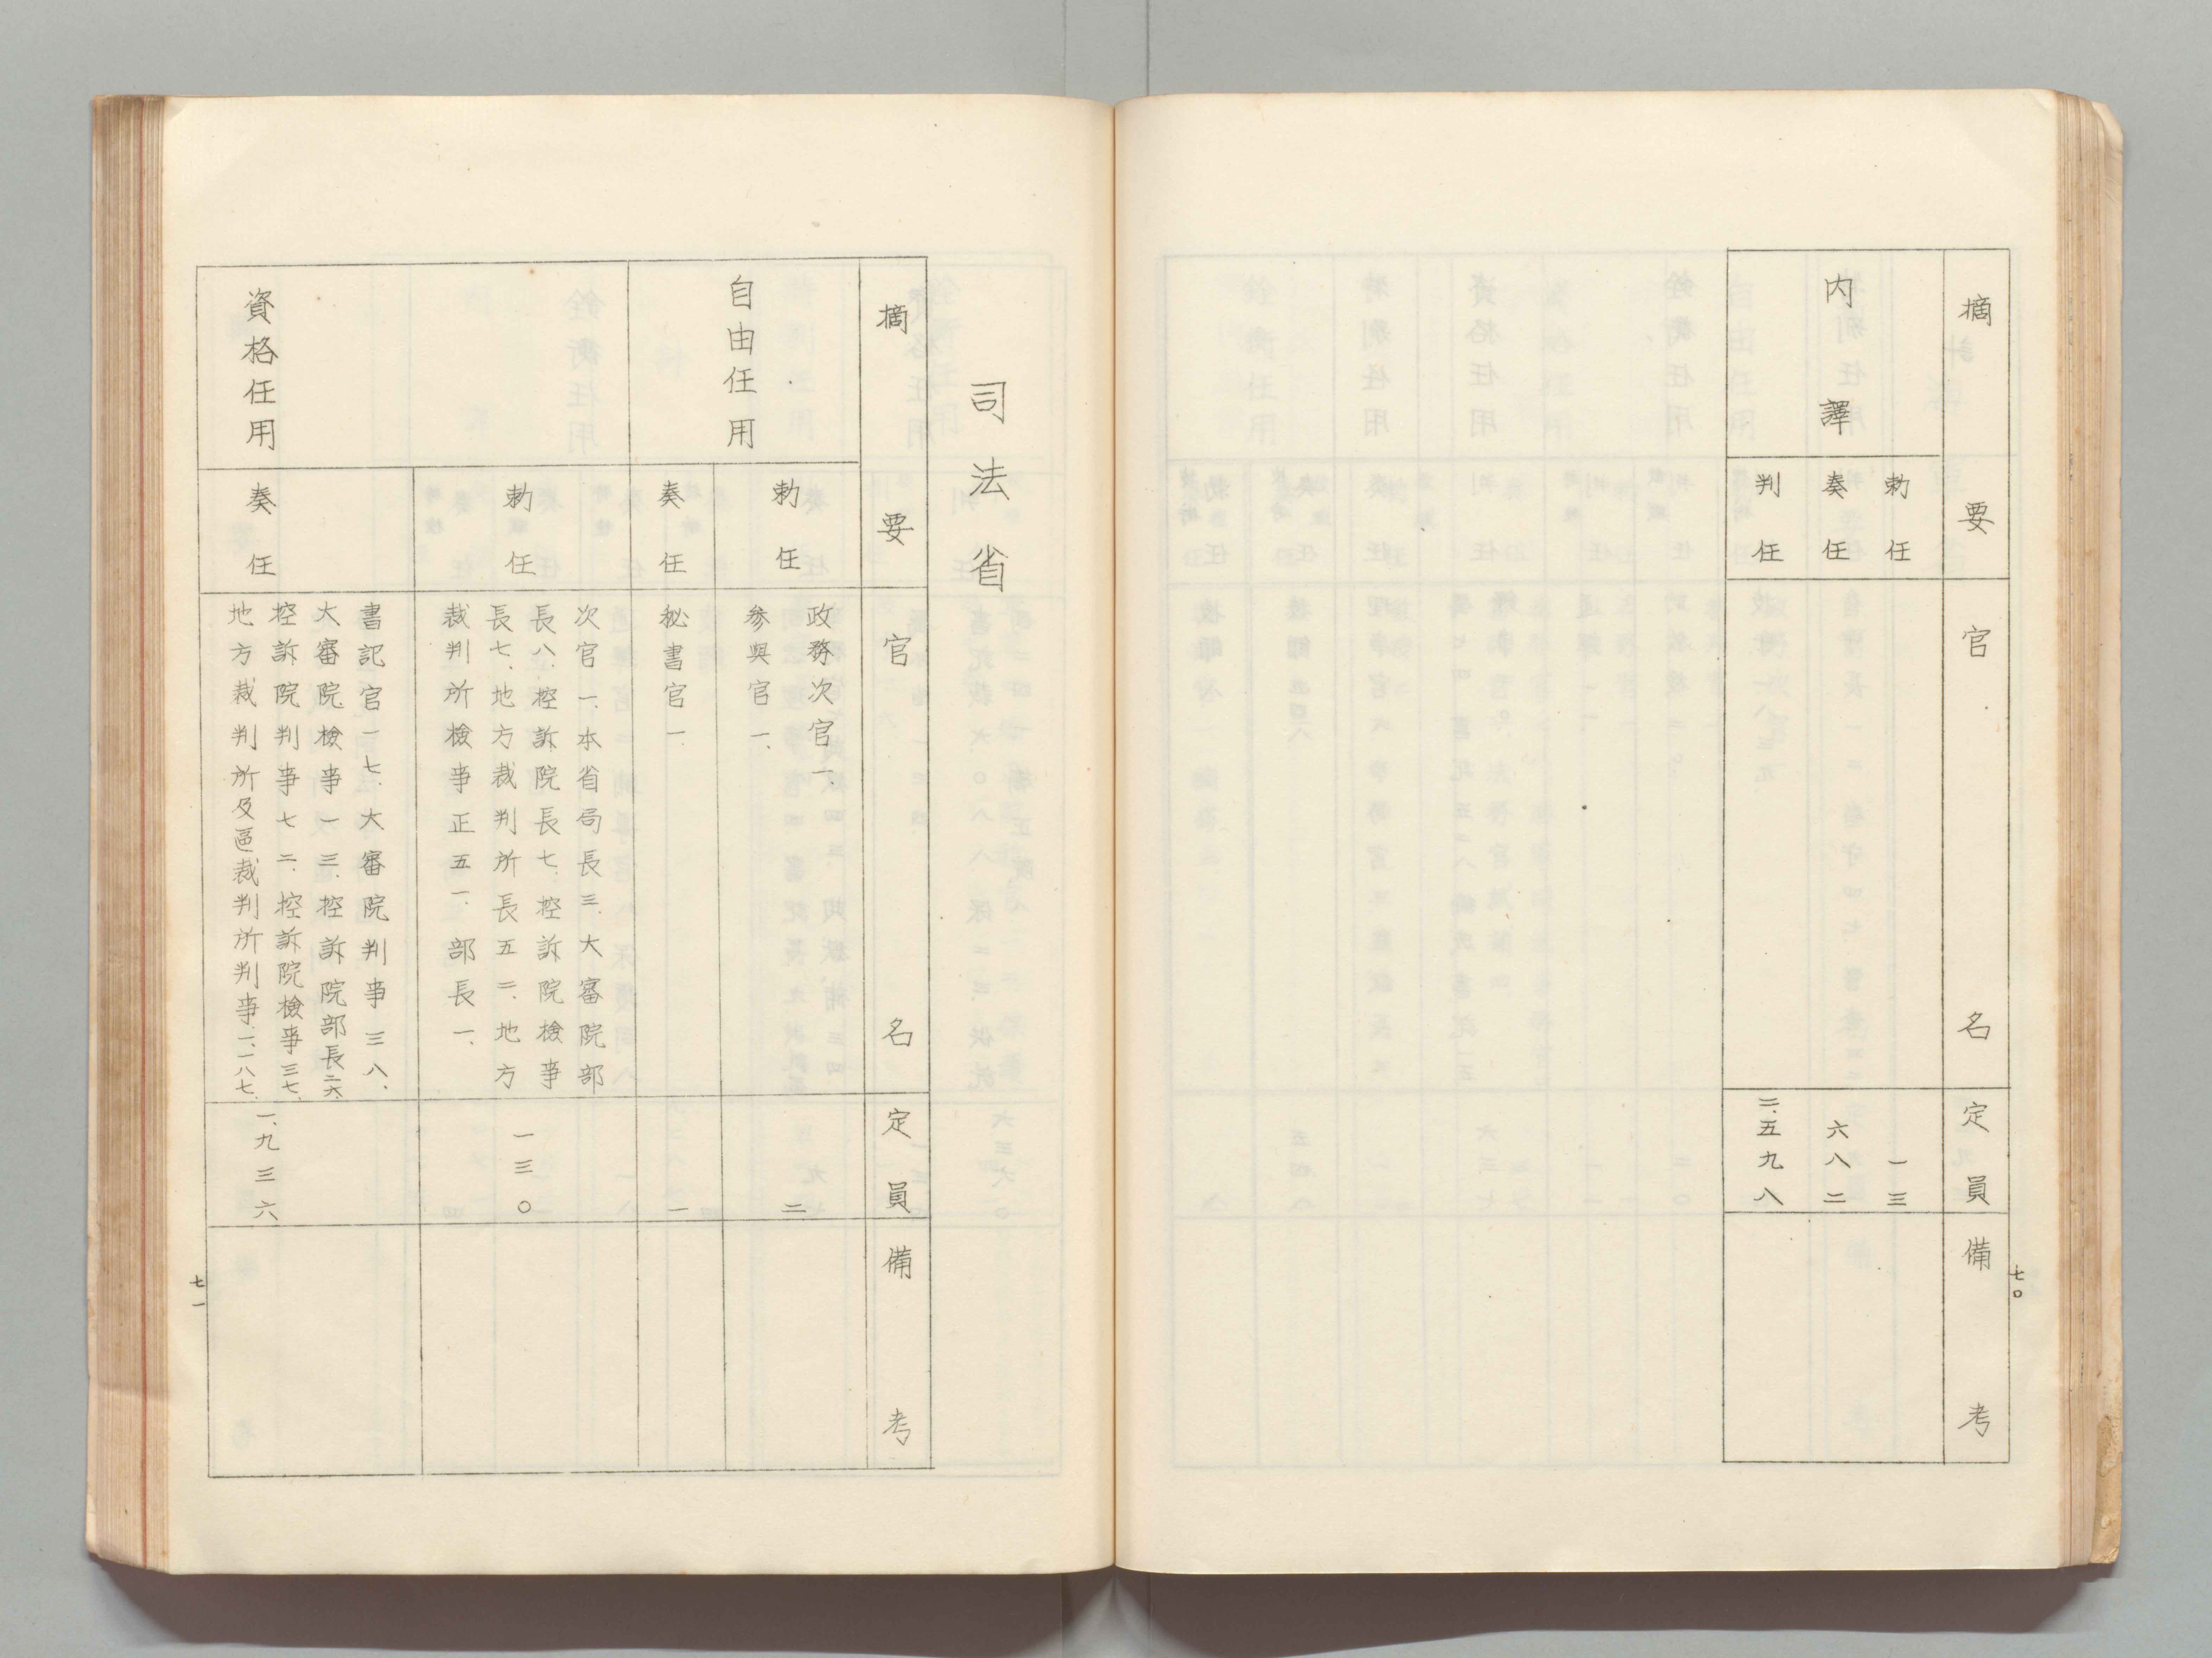 摘要
官名
定員
備考
内譯
勅任
一三
奏任
六八二
判任
二、五九八
七〇
司法省
摘要
官名
定員
備考
自由任用
勅任
政務次官一、
參與官一、
二
奏任
秘書官一
一
資格任用
勅任
次官一、本省局長三、大審院部
長八、控訴院長七、控訴院檢事
長七、地方裁判所長五二、地方
裁判所檢事正五一、部長一、
一三〇
奏任
書記官一七、大審院判事三八、
大審院檢事一三、控訴院部長二六、
控訴院判事七二、控訴院檢事三七、
地方裁判所及區裁判所判事一、一八七、
一、九三六
七一